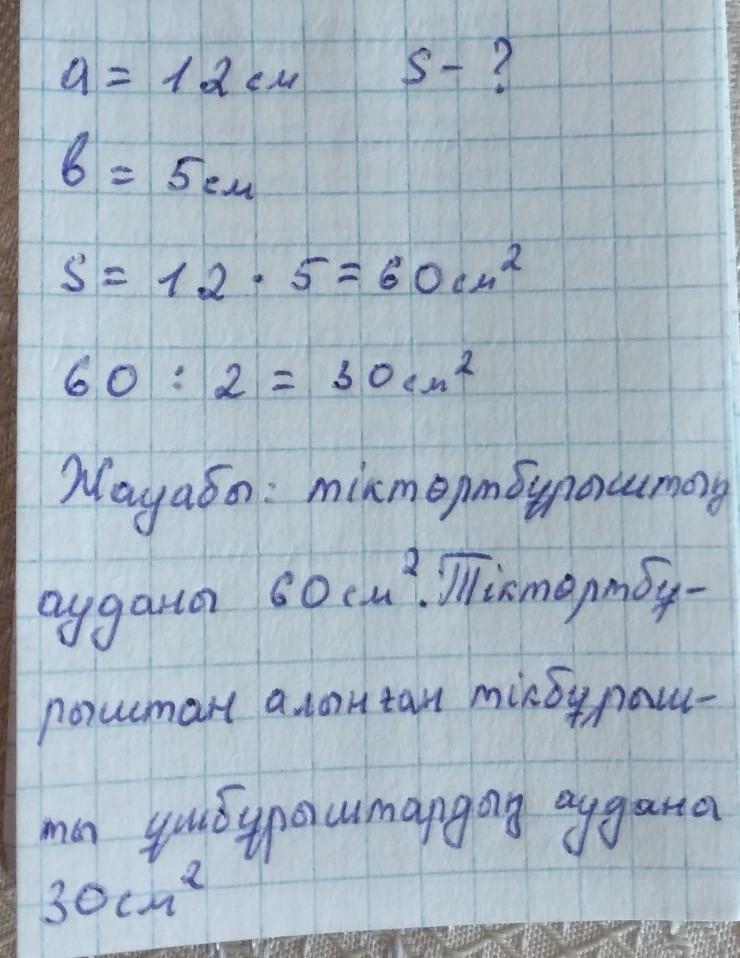 a = 12 см S - ?
в = 5 см
S = 12 · 5 = 60 см²
60 : 2 = 30 см²
Жауабы: тіктөртбұрыштың
ауданы 60 см². Тіктөртбұ-
рыштан алынған тікбұрыш-
ты үшбұрыштардың ауданы
30 см²